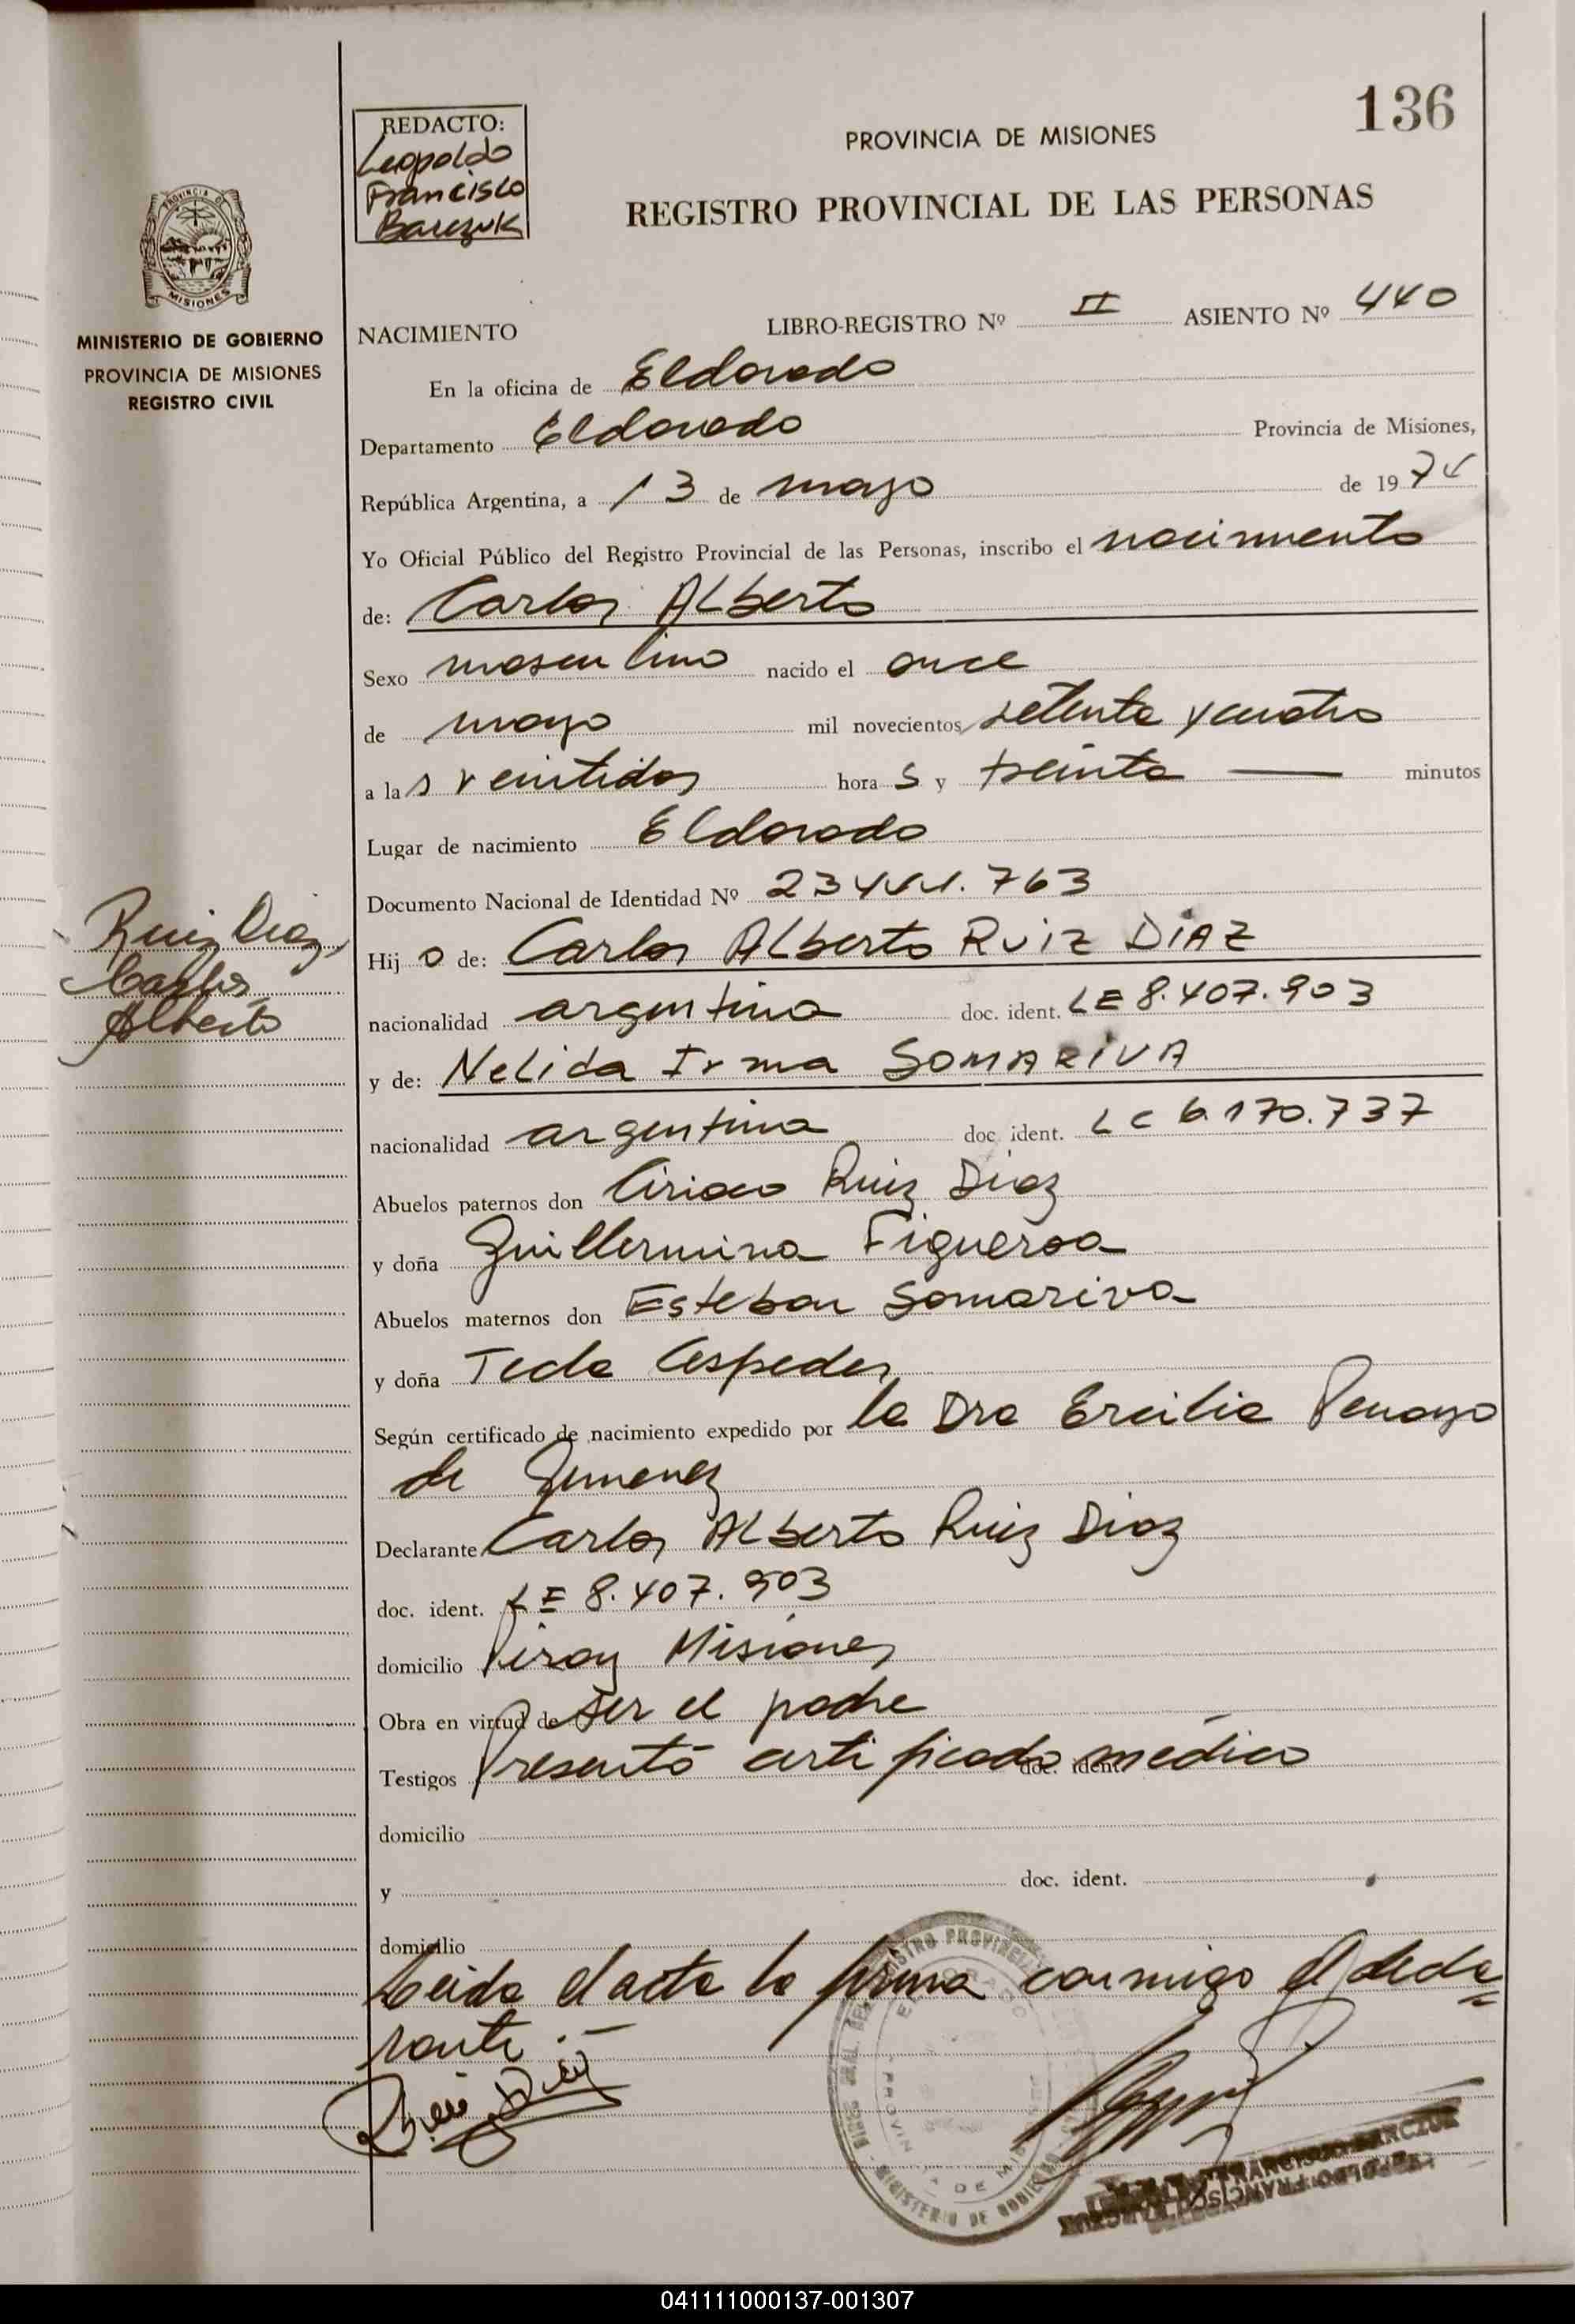 136
REDACTO:
Leopoldo
Francisco
Barczuk
PROVINCIA DE MISIONES
REGISTRO PROVINCIAL DE LAS PERSONAS
PROVINCIA DE
MISIONES
MINISTERIO DE GOBIERNO
PROVINCIA DE MISIONES
REGISTRO CIVIL
NACIMIENTO LIBRO-REGISTRO Nº II ASIENTO Nº 440
En la oficina de Eldorado
Departamento Eldorado Provincia de Misiones,
República Argentina, a 13 de mayo de 1974
Yo Oficial Público del Registro Provincial de las Personas, inscribo el nacimiento
de: Carlos Alberto
Sexo masculino nacido el once
de mayo mil novecientos setenta y cuatro
a las veintidos horas y treinta — minutos
Lugar de nacimiento Eldorado
Documento Nacional de Identidad Nº 763
Ruiz Diaz,
Carlos
Alberto
Hijo de: Carlos Alberto RUIZ DIAZ
nacionalidad argentina doc. ident. LE 8.407.903
y de: Nelida Irma SOMARIVA
nacionalidad argentina doc. ident. LC 6.170.737
Abuelos paternos don Ciriaco Ruiz Diaz
y doña Guillermina Figueroa
Abuelos maternos don Esteban Somariva
y doña Tecla Cespedes
Según certificado de nacimiento expedido por la Dra Ercilia Penayo
de Gimenez
Declarante Carlos Alberto Ruiz Diaz
doc. ident. LE 8.407.903
domicilio Piray Misiones
Obra en virtud de ser el padre
Testigos Presentó certificado médico doc. ident.
domicilio
y doc. ident.
domicilio
Leida el acta la firma conmigo el decla=
rante.—
Ruiz Diaz
ELDORADO
MINISTERIO DE GOBIERNO
LEOPOLDO FRANCISCO BARCZUK
041111000137-001307